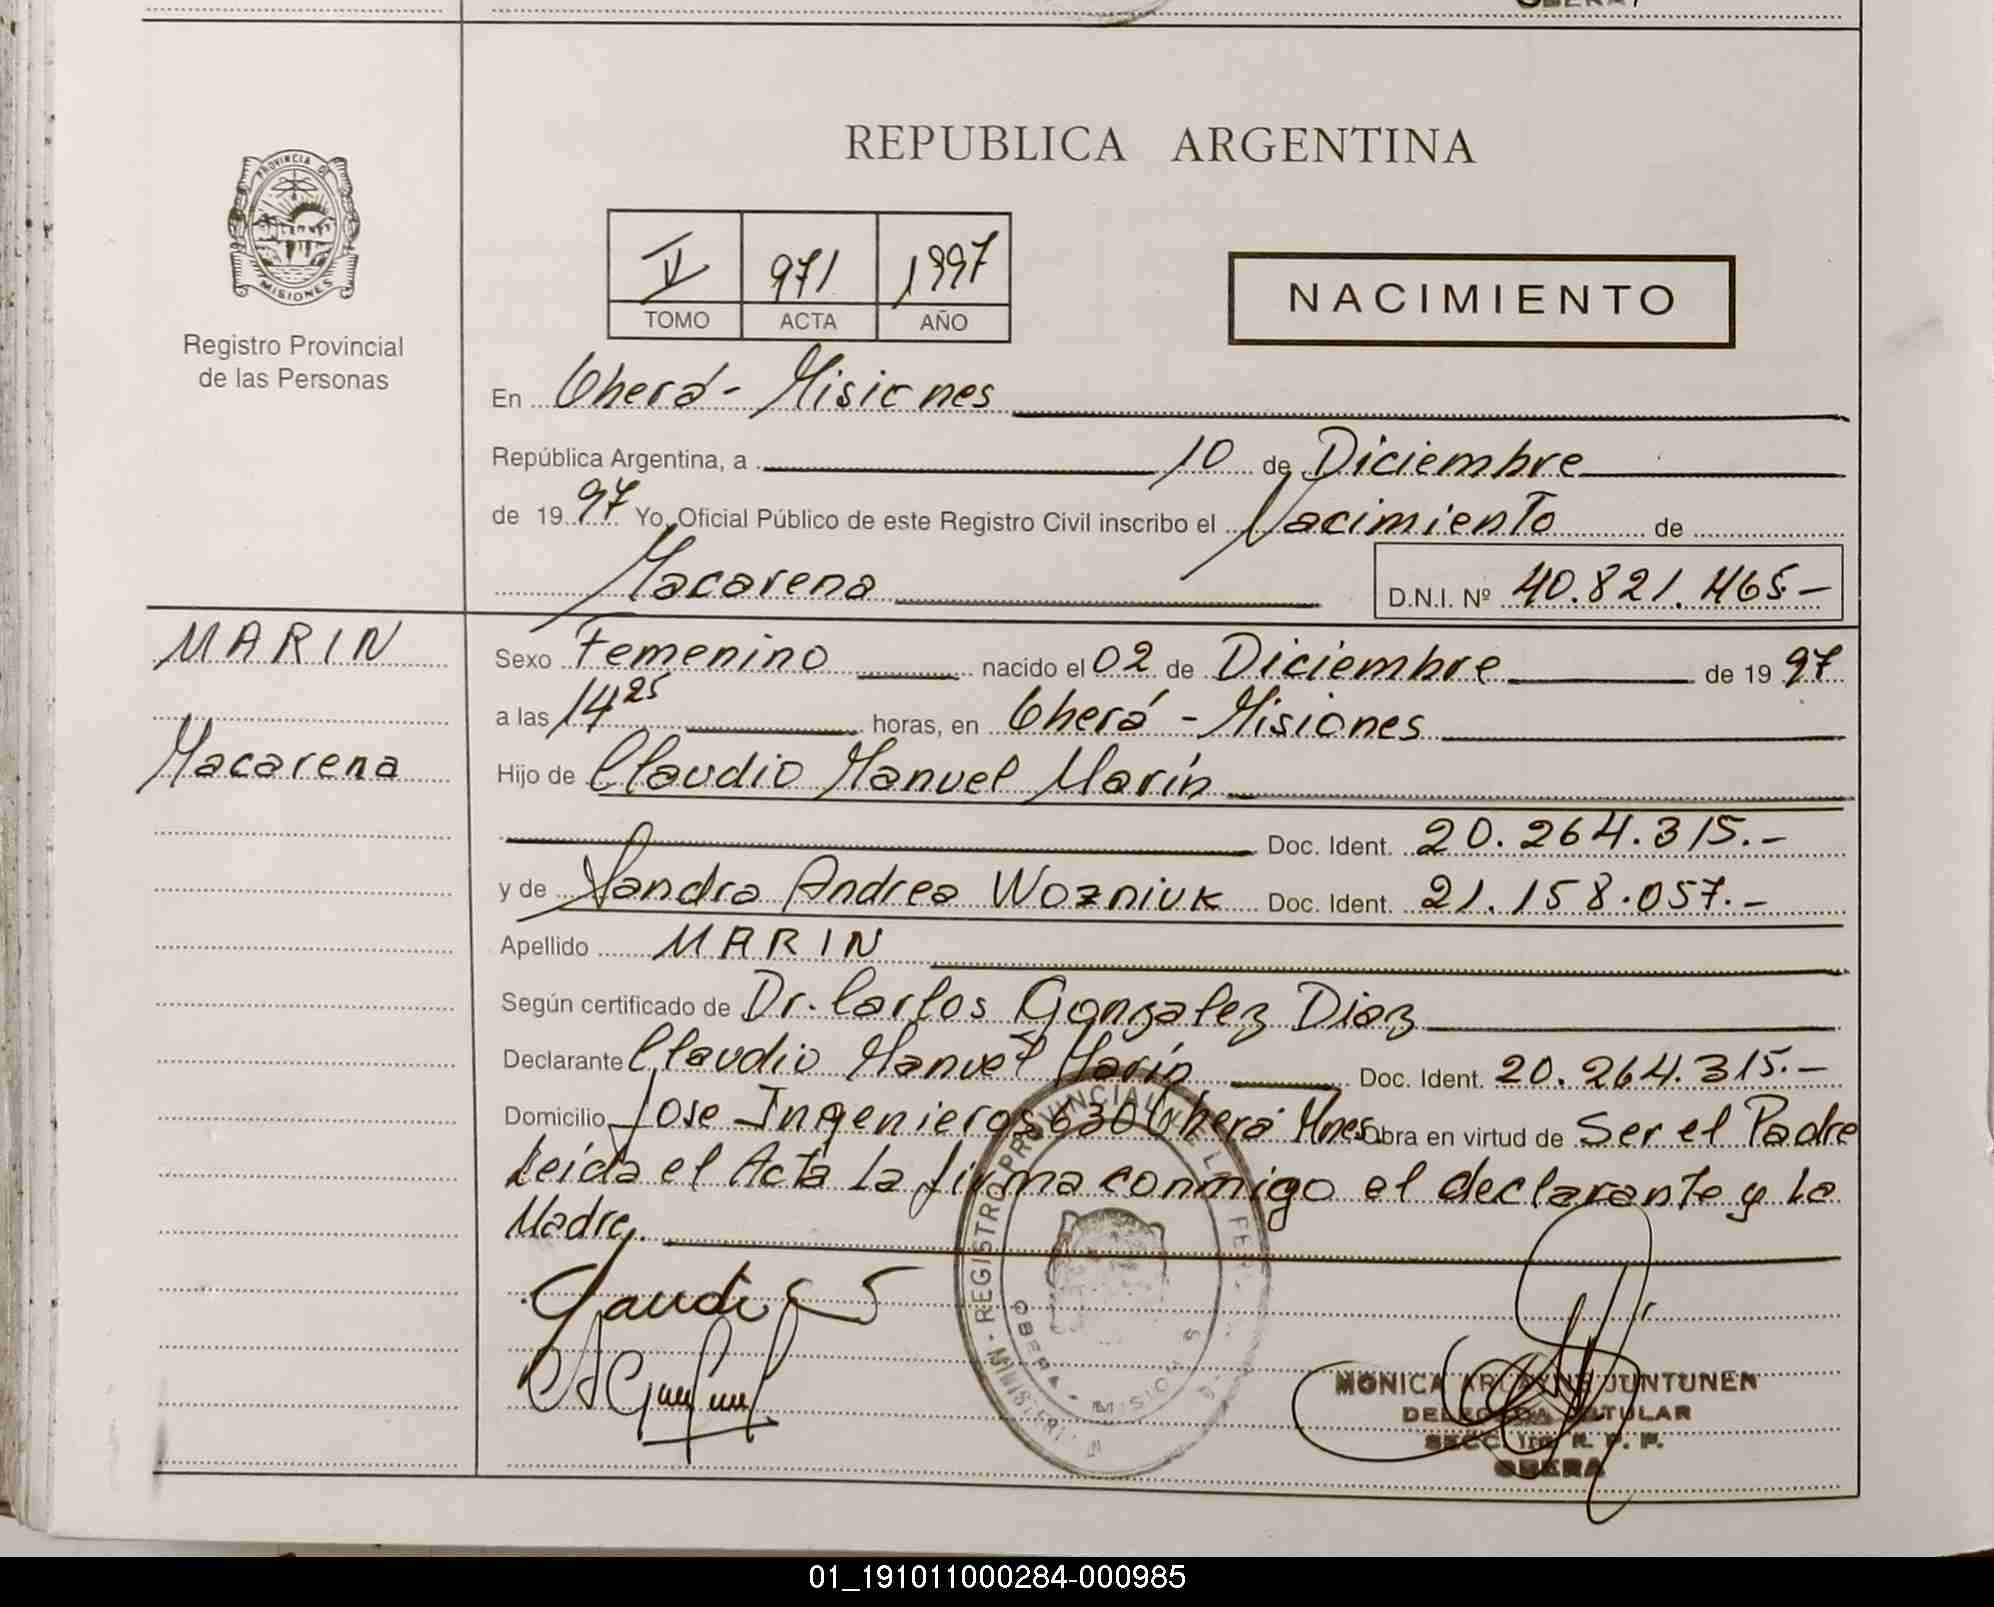 OBERA
REPUBLICA ARGENTINA
PROVINCIA DE
MISIONES
Registro Provincial
de las Personas
V 971 1997
TOMO ACTA AÑO
NACIMIENTO
En Oberá - Misiones
República Argentina, a 10 de Diciembre
de 19 97 Yo, Oficial Público de este Registro Civil inscribo el Nacimiento de
Macarena D.N.I. Nº 40.821.465.-
MARIN
Macarena
Sexo Femenino nacido el 02 de Diciembre de 19 97
a las 14 25 horas, en Oberá - Misiones
Hijo de Claudio Manuel Marín
Doc. Ident. 20.264.315.-
y de Sandra Andrea Wozniuk Doc. Ident. 21.158.057.-
Apellido MARIN
Según certificado de Dr. Carlos Gonzalez Diaz
Declarante Claudio Manuel Marín Doc. Ident. 20.264.315.-
Domicilio Jose Ingenieros 630 Oberá Mnes Obra en virtud de Ser el Padre
Leída el Acta La firma conmigo el declarante y La
Madre.
REGISTRO PROVINCIAL DE LA PER
OBERA - MISIONES
MONICA JUNTUNEN
DELEGADA TITULAR
SECC. 1ra. R. P. P.
OBERA
01_191011000284-000985